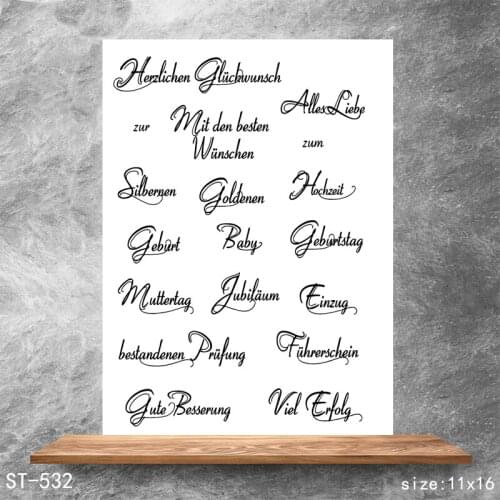 Herzlichen Glückwunsch
Alles Liebe
zur
Mit den besten
Wünschen
zum
Silbernen
Goldenen
Hochzeit
Geburt
Baby
Geburtstag
Muttertag
Jubiläum
Einzug
bestandenen Prüfung
Führerschein
Gute Besserung
Viel Erfolg
ST-532
size:11x16